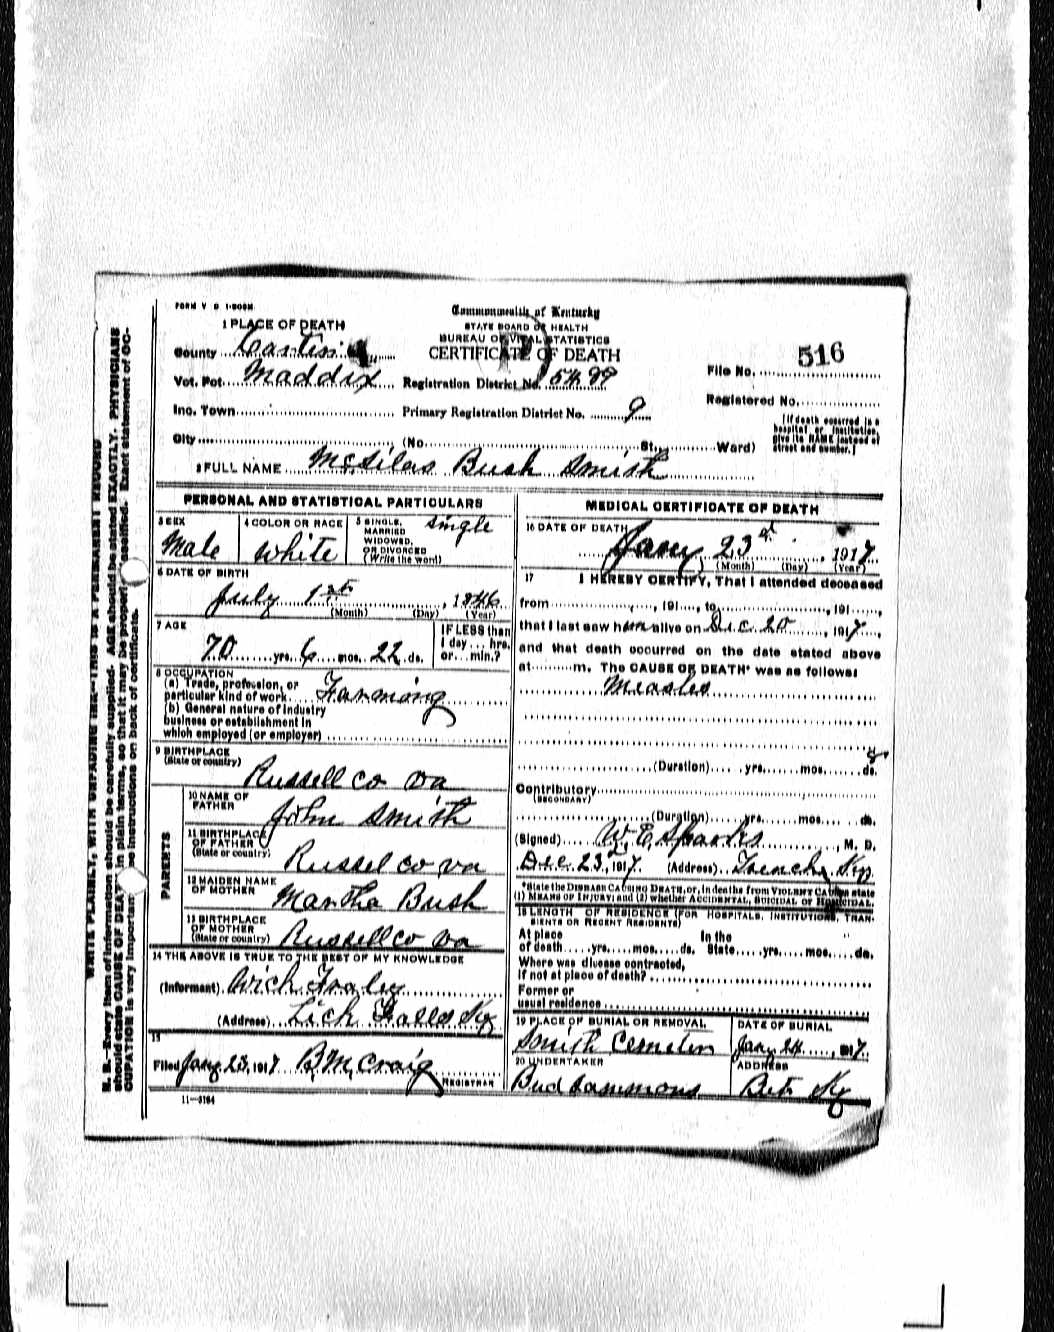 FORM V S 1-50M
Commonwealth of Kentucky
STATE BOARD OF HEALTH
BUREAU OF VITAL STATISTICS
CERTIFICATE OF DEATH
1 PLACE OF DEATH
County
Vot. Pct. Maddix Registration District No. 5499
File No. 516
Inc. Town Primary Registration District No. 9
Registered No.
City (No. St. Ward)
[If death occurred in a
hospital or institution,
give its NAME instead of
street and number.]
2 FULL NAME McSilas Bush Smith
PERSONAL AND STATISTICAL PARTICULARS
3 SEX
Male
4 COLOR OR RACE
White
5 SINGLE,
MARRIED
WIDOWED,
OR DIVORCED
(Write the word)
Single
6 DATE OF BIRTH
July 1st, 1846
(Month) (Day) (Year)
7 AGE
70 yrs. 6 mos. 22 ds.
IF LESS than
1 day... hrs.
or... min.?
8 OCCUPATION
(a) Trade, profession, or
particular kind of work Farming
(b) General nature of industry
business or establishment in
which employed (or employer)
9 BIRTHPLACE
(State or country)
Russell co va
PARENTS
10 NAME OF
FATHER
John Smith
11 BIRTHPLACE
OF FATHER
(State or country)
Russel co va
12 MAIDEN NAME
OF MOTHER
Martha Bush
13 BIRTHPLACE
OF MOTHER
(State or country)
Russell co va
14 THE ABOVE IS TRUE TO THE BEST OF MY KNOWLEDGE
(Informant) Wich Fraley
(Address) Lick Falls Ky
15
Filed Jany 23, 1917 B.M. Craig
REGISTRAR
11-3184
MEDICAL CERTIFICATE OF DEATH
16 DATE OF DEATH
Jany 23d, 1917
(Month) (Day) (Year)
17 I HEREBY CERTIFY, That I attended deceased
from , 191 , to , 191 ,
that I last saw him alive on Dec 20, 1917,
and that death occurred on the date stated above
at m. The CAUSE OF DEATH* was as follows:
Measles
(Duration) yrs. mos. 8 ds.
Contributory
(SECONDARY)
(Duration) yrs. mos. ds.
(Signed) W.E. Sparks, M. D.
Dec 23, 1917. (Address) Ky.
*State the DISEASE CAUSING DEATH, or, in deaths from VIOLENT CAUSES state
(1) MEANS OF INJURY; and (2) whether ACCIDENTAL, SUICIDAL OR HOMICIDAL.
18 LENGTH OF RESIDENCE (FOR HOSPITALS, INSTITUTIONS, TRAN-
SIENTS OR RECENT RESIDENTS)
At place In the
of death yrs. mos. ds. State yrs. mos. ds.
Where was disease contracted,
If not at place of death?
Former or
usual residence
19 PLACE OF BURIAL OR REMOVAL
Smith
DATE OF BURIAL
Jany 24, 1917.
20 UNDERTAKER
Bud Sammons
ADDRESS
Ky
WRITE PLAINLY, WITH UNFADING INK—THIS IS A PERMANENT RECORD
N. B.—Every item of information should be carefully supplied. AGE should be stated EXACTLY. PHYSICIANS
should state CAUSE OF DEATH in plain terms, so that it may be properly classified. Exact statement of OC-
CUPATION is very important. See instructions on back of certificate.